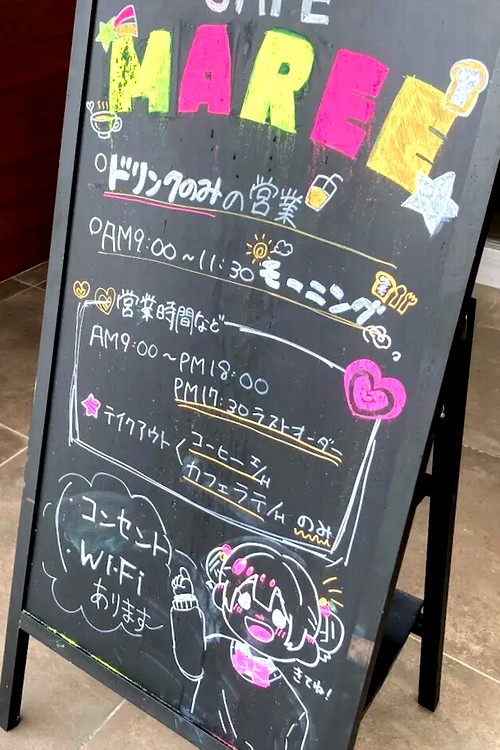 CAFE
MAREE
ドリンクのみの営業
AM9:00~11:30モーニング
営業時間など
AM9:00~PM18:00
PM17:30ラストオーダー
テイクアウト
コーヒーI/H
カフェラテI/Hのみ
コンセント
Wi-Fi
あります
きてね!